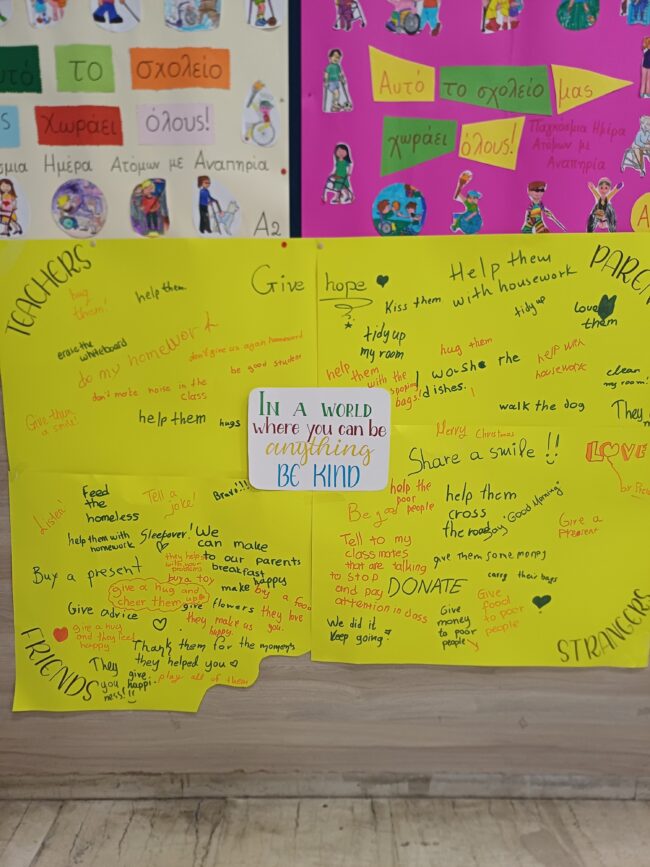 το
σχολείο
Χωράει
όλους!
Ημέρα Ατόμων με Αναπηρία
Α2
Αυτό
το σχολείο
μας
χωράει
όλους!
Παγκόσμια Ημέρα
Ατόμων με
Αναπηρία
TEACHERS
hug
them!
help them
erase the
whiteboard
do my homework
don't give us again homework
be good student
don't make noise in the
class
Give them
a smile!
help them
hugs
Give hope
Help them
with housework
Kiss them
tidy up
Love
them
tidy up
my room
hug them
help
them
with the
bags!
I wash the
dishes.
help with
housework
clean
my room!
walk the dog
They
IN A WORLD
where you can be
anything
BE KIND
Merry Christmas
Share a smile !!
LOVE
help the
poor
people
Be good
help them
cross
the road
say "Good Morning"
Give a
present
Tell to my
classmates
that are talking
to stop
and pay
attention in class
give them some money
carry their bags
DONATE
Give
money
to poor
people
Give
food
to poor
people
We did it
keep going
STRANGERS
Listen!
Feed
the
homeless
Tell a
joke!
Bravo!!!
help them with
homework
Sleepover!
We
can make
to our parents
breakfast
happy
they help
with your
problems
Buy a present
buy a toy
give a hug and
cheer them up
make
Give advice
give flowers
they make us
happy.
they love
you.
give a hug
and they feel
happy
Thank them for the moments
they helped you
They
give
you happi-
ness!!
play all of them
FRIENDS